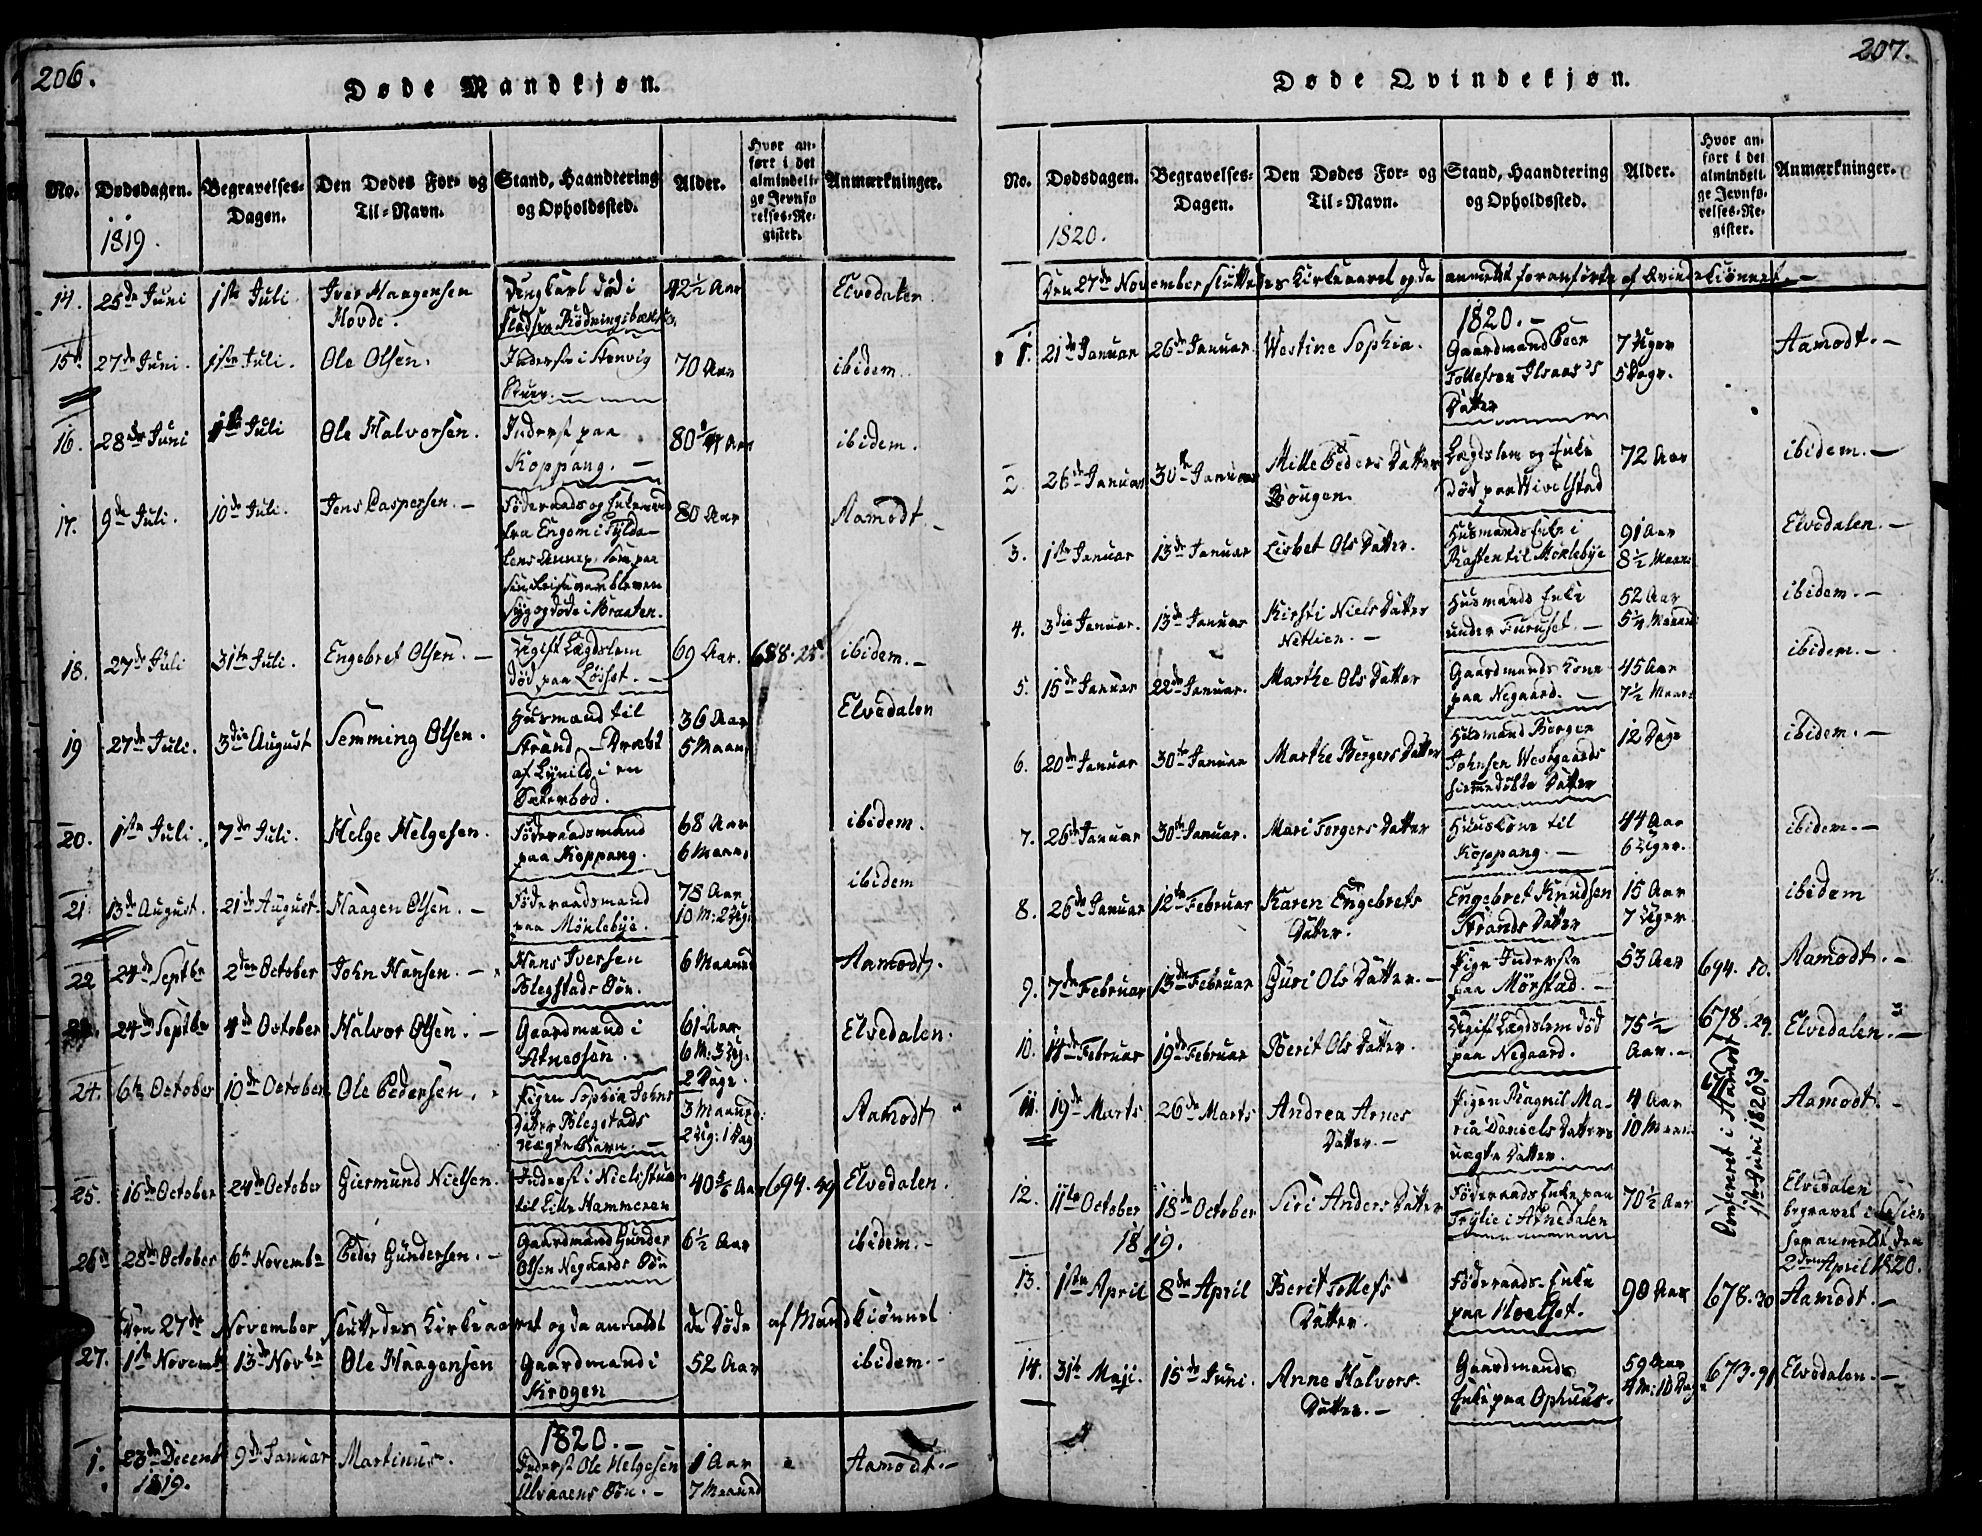 206.
Døde Mandkjøn.
No.
Dødsdagen.
1819.
Begravelses-
Dagen.
Den Dødes For- og
Til-Navn.
Stand, Haandtering
og Opholdssted.
Alder.
Hvor an-
ført i det
almindeli-
ge Jevnfø-
relses-Re-
gister.
Anmærkninger.
14. 25de Juni 1ste Juli Iver Haagensen 42½ Aar Elvedalen.
Hovde.
15. 27de Juni. 1ste Juli. Ole Olsen. Inderst i Stenvig 70 Aar ibidem.
16. 28de Juni 1ste Juli Ole Halvorsen. Inderst paa 80 Aar ibidem.
Koppang. —
17. 9de Juli. 10de Juli. Jens Caspersen. — Føderaads og Enkemand 80 Aar Aamodt. —
syg og døde i Braaten.
18. 27de Juli 31te Juli. Engebret Olsen. — Ugift Lægdslem 69 Aar. 688.25. ibidem. —
død paa Løsset. —
19 27de Juli. 3die August Semming Olsen. Husmand til 36 Aar Elvedalen
Strand, — Dræbt 5 Maan.
af Lynild i en
Sæterbod.
20. 1ste Juli. 7de Juli. Helge Helgesen. Føderaadsmand 68 Aar ibidem.
paa Koppang. 6 Maan.
21. 13de August. 21de August. Haagen Olsen. — Føderaadsmand 78 Aar ibidem
paa Møklebye. 10 M: 2 Ug:
22 24de Septbr 2den October John Hansen. — Hans Iversen 6 Maaned Aamodt.
Blegstads Søn.
23. 24de Septbr 4de October Halvor Olsen. — Gaardmand i 61 Aar Elvedalen.
Atneosen. 6 M: 3 Ug:
2 Dage.
24. 6te October 10de October Ole Pedersen. Pigen Sophia Johns 3 Maaned: Aamodt
Datter Blegstads 2 Ug: 1 Dag
uægte Barn. —
25. 16de October 24de October Giermund Nielsen. Inderst i Nielsstuen 40 5/6 Aar 694.49 Elvedalen.
til Lille Hammeren
26 28de October 6te Novembr Peder Gundersen. — Gaardmand Gunder 6½ Aar ibidem. —
Olsen Negaards Søn
Den 27de November sluttedes Kirkeaaret og da anmeldt de Døde af Mandkiønnet
27. 1ste Novembr 13de Novbr Ole Haagensen Gaardmand i 52 Aar ibidem. —
Krogen
1820. —
1. 23de Decemb 9de Januar Martinus. Inderst Ole Helgesen 1 Aar Aamodt. —
1819. Ulvaaens Søn. — 7 Maaned
207.
Døde Qvindekjøn.
No.
Dødsdagen.
1820.
Begravelses-
Dagen.
Den Dødes For- og
Til-Navn.
Stand, Haandtering
og Opholdssted.
Alder.
Hvor an-
ført i det
almindeli-
ge Jevnfø-
relses-Re-
gister.
Anmærkninger.
Den 27de November sluttedes Kirkeaaret og da anmeldt foranførte af Qvindekiønnet. —
1820. —
1. 21de Januar 26de Januar Westine Sophia. Gaardmand Peer 7 Uger Aamodt. —
Tollefsen Ilsaas's 5 Dage.
Datter
2 26de Januar 30te Januar Mille Peders Datter Lægdslem og Enke 72 Aar ibidem. —
Bougen. død paa Hivelstad
3. 1ste Januar 13de Januar Lisbet Ols Datter. Husmands Enke i 91 Aar Elvedalen. —
Kasten til Møklebye 8½ Maan:
4. 3die Januar. 13de Januar Kirsti Niels Datter Husmands Enke 52 Aar ibidem. —
Netlien. — under Furuset. —
5. 15de Januar 22de Januar. Marthe Ols Datter Gaardmands Kone 45 Aar ibidem. —
paa Negaard. — 7½ Maan:
6. 20de Januar 30te Januar Marthe Bergers Datter Husmand Berger 12 Dage ibidem. —
Johnsen Westgaards
hiemmedøbte Datter
7. 26de Januar 30te Januar. Mari Torgers Datter Huuskone til 44 Aar ibidem. —
Koppang. — 6 Uger.
8. 26de Januar 12te Februar Karen Engebrets Engebret Knudsen 15 Aar ibidem
Datter. Strands Datter 7 Uger
9. 7de Februar 13de Februar Guri Ols Datter. — Pige Inderste 53 Aar 694.50. Aamodt. —
paa Mørstad. —
10. 14de Februar 19de Februar Berit Ols Datter. Ugift Lægdslem død 75½ 678.29. Elvedalen. —
paa Negaard. Aar. —
11. 19de Marts 26de Marts Andrea Arnes Pigen Ragnil Ma- 4 Aar Aamodt. —
Datter. — ria Daniels Datters 10 Maan:
uægte Datter.
Confereret i Aamodt
1ste Juni 1820
12. 11te October 18de October Siri Anders Datter Føderaads Enke paa 70½ Aar Elvedalen
1819. Trylie i Atnedalen begravet i Solien
som anmeldt den
2den April 1820.
13. 1ste April 8de April Berit Tollefs Føderaads-Enke 90 Aar 678.30 Aamodt. —
Datter. paa Hoelset.
14. 31te Maji. 15de Juni. Anne Halvors Gaardmands 59 Aar 673.91 Elvedalen. —
Datter. — Enke paa Ophuus. 4 M: 10 Dage